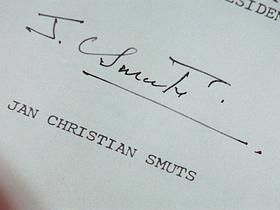 J. C. Smuts.
JAN CHRISTIAN SMUTS